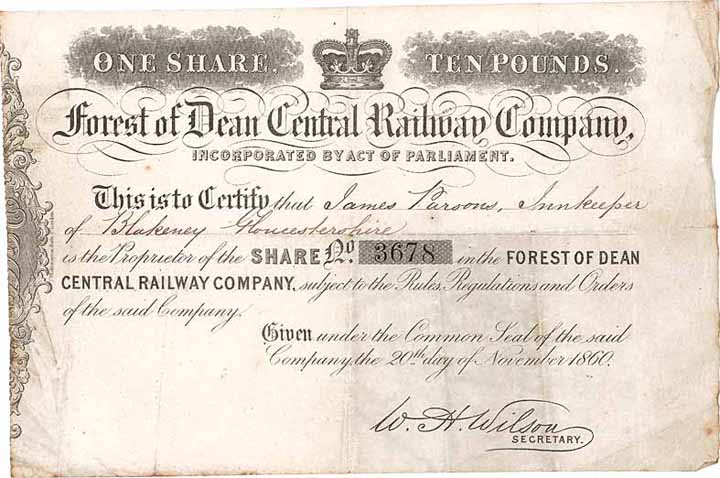 ONE SHARE. TEN POUNDS.
Forest of Dean Central Railway Company,
INCORPORATED BY ACT OF PARLIAMENT.
This is to Certify that James Parsons, Innkeeper
of Blakeney Gloucestershire
is the Proprietor of the SHARE No. 3678 in the FOREST OF DEAN
CENTRAL RAILWAY COMPANY, subject to the Rules, Regulations and Orders
of the said Company.
Given under the Common Seal of the said
Company, the 20th day of November 1860.
W. H. Wilson
SECRETARY.